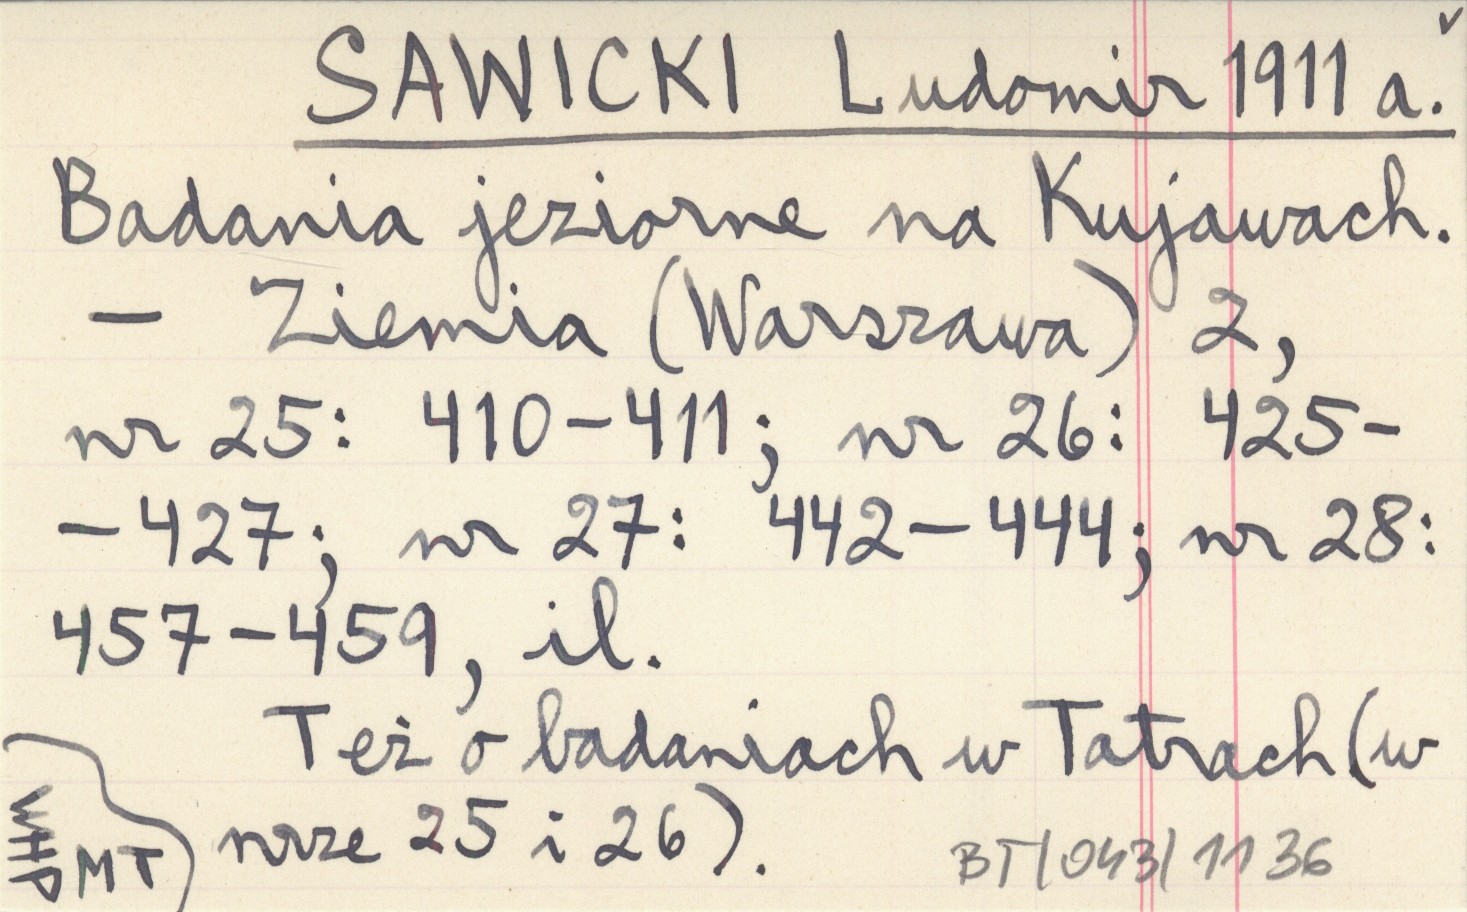 SAWICKI Ludomir 1911 a. ✓
Badania jeziorne na Kujawach.
— Ziemia (Warszawa) 2,
nr 25: 410-411; nr 26: 425-
-427; nr 27: 442-444; nr 28:
457-459, il.
Też o badaniach w Tatrach (w
nrze 25 i 26).
WHP
MT
BT/043/1136